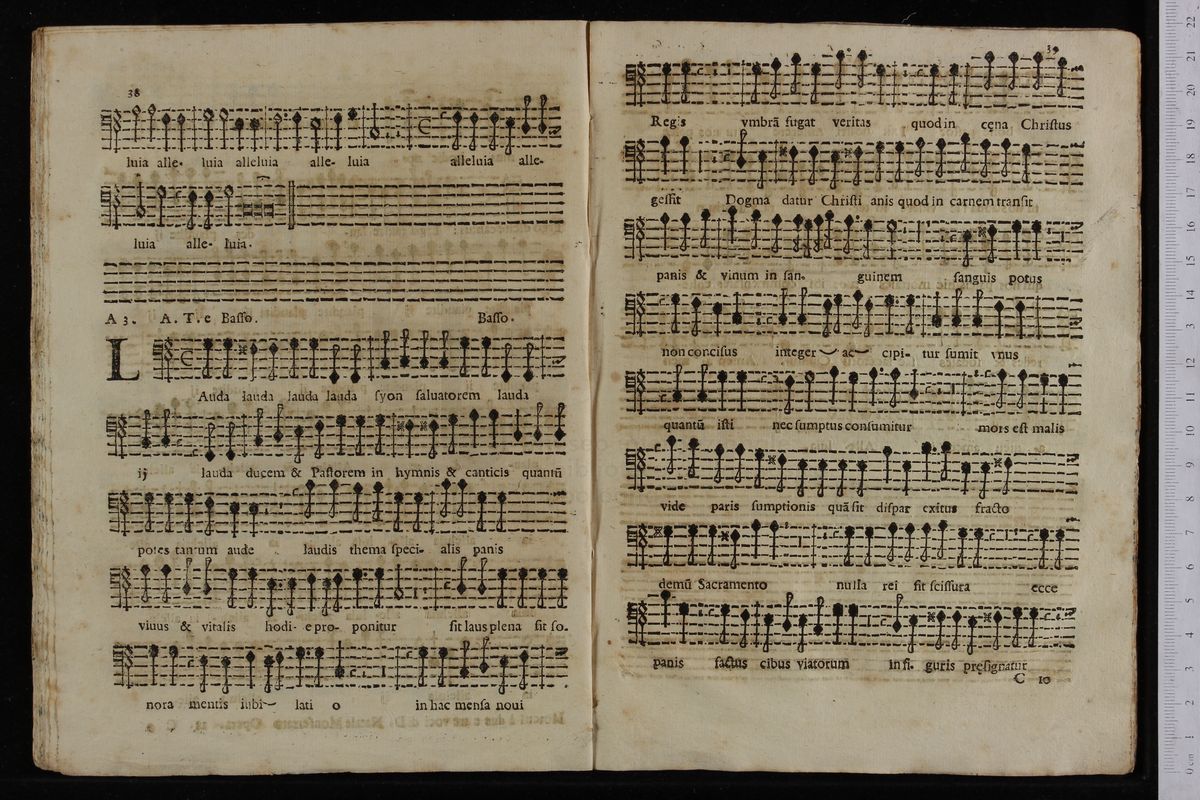 38
luia alle- luia alleluia alle- luia alleluia alle-
luia alle- luia.
A 3. A. T. e Basso. Basso.
LAuda lauda lauda lauda syon saluatorem lauda
ij lauda ducem & Pastorem in hymnis & canticis quantũ
potes tantum aude laudis thema speci- alis panis
viuus & vitalis hodi- e pro- ponitur sit laus plena sit so-
nora mentis iubi- lati o in hac mensa noui
39
Regis vmbrã fugat veritas quod in cęna Christus
gessit Dogma datur Christi anis quod in carnem transit
panis & vinum in san- guinem sanguis potus
non concisus integer ac- cipi- tur sumit vnus
quantũ isti nec sumptus consumitur mors est malis
vide paris sumptionis quã sit dispar exitus fracto
demũ Sacramento nulla rei fit scissura ecce
panis factus cibus viatorum in fi- guris pręsignatur
C 10